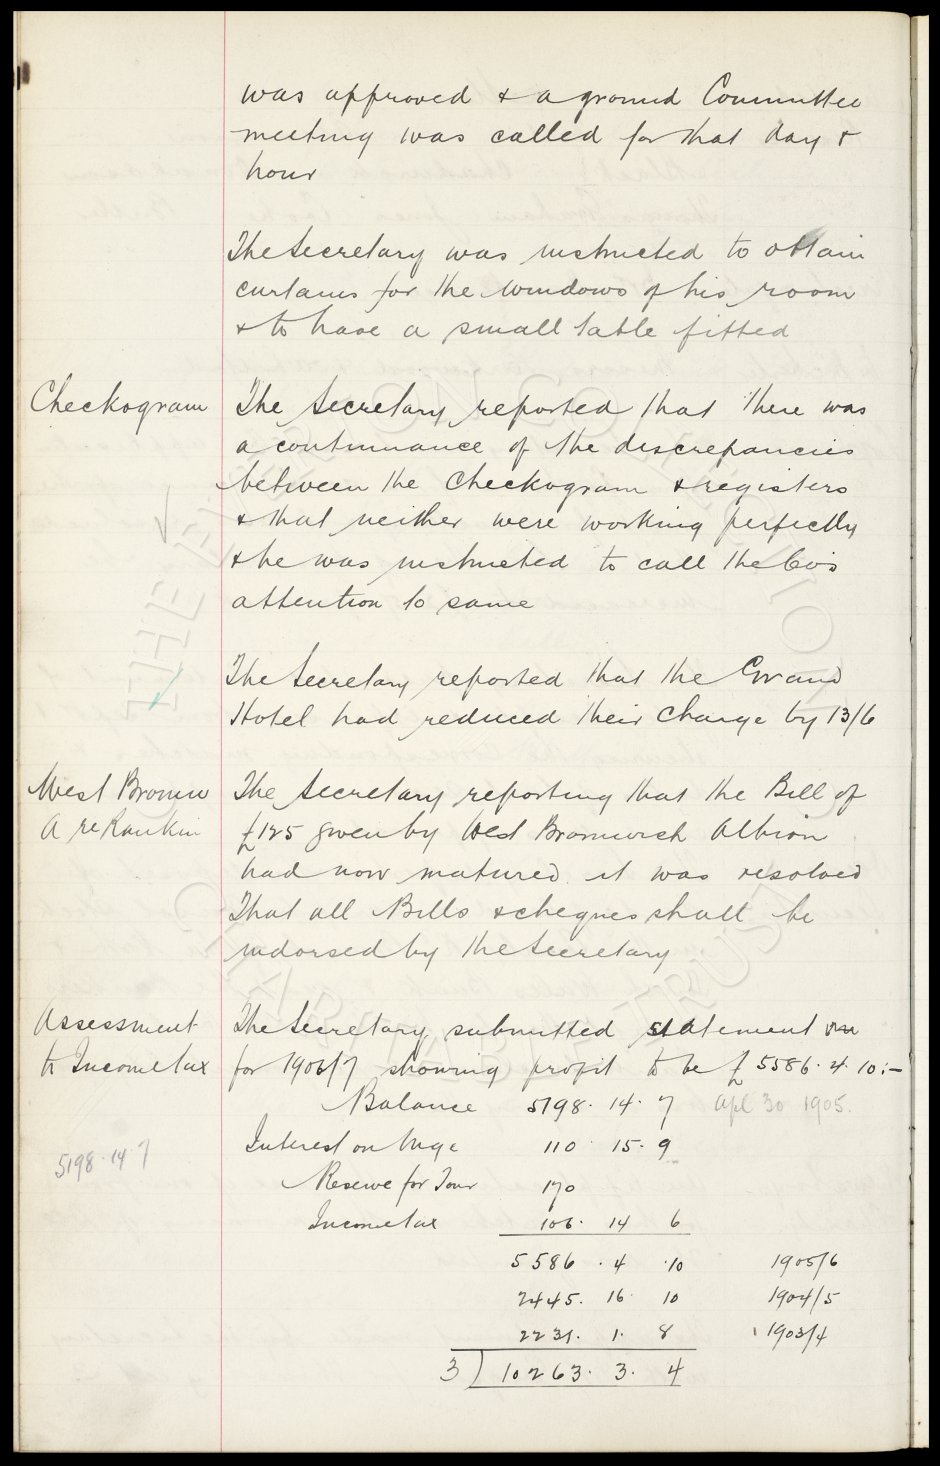 was approved & a ground Committee
meeting was called for that day &
hour
The Secretary was instructed to obtain
curtains for the windows of his room
& to have a small table fitted
Checkogram
The Secretary reported that there was
a continuance of the discrepancies
between the Checkogram & registers
& that neither were working perfectly
& he was instructed to call the Co's
attention to same
The Secretary reported that the Grand
Hotel had reduced their Charge by 13/6
West Bromw
A re Rankin
The Secretary reporting that the Bill of
£125 given by West Bromwich Albion
had now matured it was resolved
That all Bills & cheques shall be
indorsed by the Secretary
Assessment
to Income tax
The Secretary submitted statement
for 1906/7 showing profit to be £5586. 4. 10:-
Balance 5198. 14. 7 Apl 30 1905.
Interest on Mge 110 15. 9
5198. 14 7
Reserve for Tour 170
Income tax 106. 14 6
5586. 4. 10 1905/6
2445. 16. 10 1904/5
2231. 1. 8 1903/4
3) 10263. 3. 4